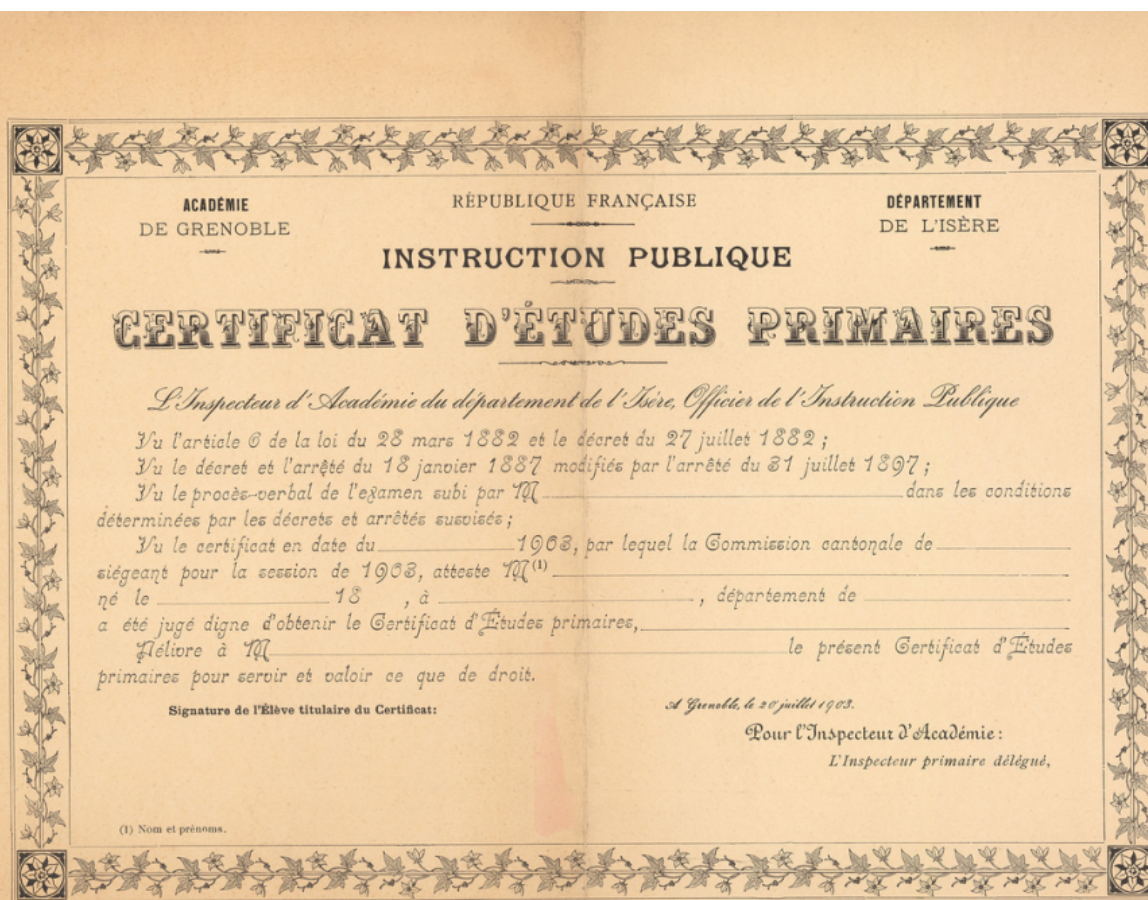 ACADÉMIE
DE GRENOBLE
RÉPUBLIQUE FRANÇAISE
DÉPARTEMENT
DE L'ISÈRE
INSTRUCTION PUBLIQUE
CERTIFICAT D'ÉTUDES PRIMAIRES
L'Inspecteur d'Académie du département de l'Isère, Officier de l'Instruction Publique
Vu l'article 6 de la loi du 28 mars 1882 et le décret du 27 juillet 1882 ;
Vu le décret et l'arrêté du 18 janvier 1887 modifiés par l'arrêté du 31 juillet 1897 ;
Vu le procès-verbal de l'examen subi par M dans les conditions
déterminées par les décrets et arrêtés susvisés ;
Vu le certificat en date du 1903, par lequel la Commission cantonale de
siégeant pour la session de 1903, atteste M (1)
né le 18 , à , département de
a été jugé digne d'obtenir le Certificat d'Études primaires,
Délivre à M le présent Certificat d'Études
primaires pour servir et valoir ce que de droit.
Signature de l'Élève titulaire du Certificat:
A Grenoble, le 20 juillet 1903.
Pour l'Inspecteur d'Académie :
L'Inspecteur primaire délégué,
(1) Nom et prénoms.